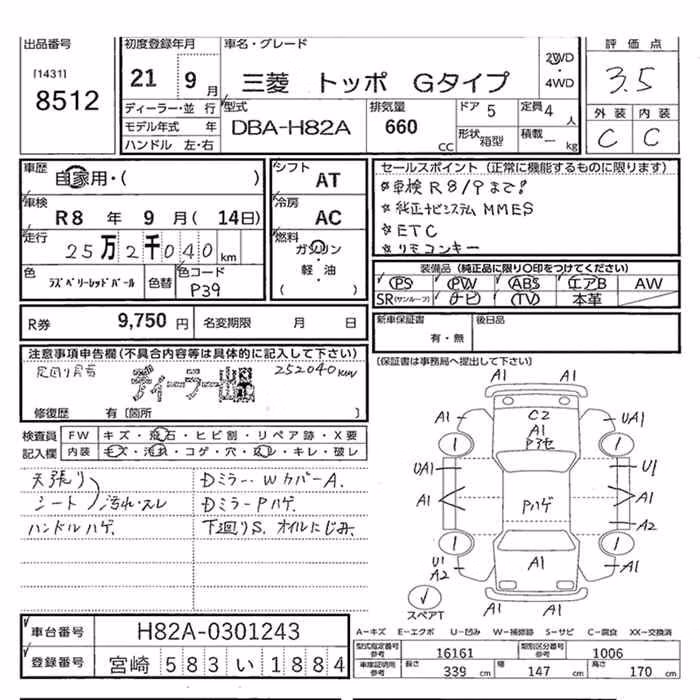 出品番号 初度登録年月 車名・グレード 評価点
[1431] 21 9月 三菱 トッポ Gタイプ 2WD・4WD 3.5
8512 ディーラー・並行 型式 排気量 ドア 5 定員 4人 外装 内装
モデル年式 年 DBA-H82A 660 CC 形状 箱型 積載 ー kg C C
ハンドル 左・右
車歴 自家用・( ) シフト AT セールスポイント (正常に機能するものに限ります)
車検 R8年 9月(14日) 冷房 AC ☆車検 R8/9まで!
走行 25万2千040km 燃料 ガソリン・軽・油 ( ) ☆純正ナビシステム MMES
☆ETC
☆リモコンキー
色 ラズベリーレッドパール 色替 色コード P39 装備品 (純正品に限り○印をつけてください)
PS PW ABS エアB AW
SR(サンルーフ) ナビ TV 本革
R券 9,750円 名変期限 月 日 新車保証書 有・無 後日品
注意事項申告欄(不具合内容等は具体的に記入して下さい) (保証書は事務局へ提出して下さい)
ディーラー出品 252040km
修復歴 有〔箇所 〕
検査員 FW キズ・飛石・ヒビ割・リペア跡・X要
記入欄 内装 キズ・汚れ・コゲ・穴・スレ・キレ・破レ
天張り Dミラー Wカバー A.
シート 汚れ・スレ Dミラー Pハゲ
ハンドルハゲ. 下廻りS. オイルにじみ.
A1 A1
A1 C2 UA1
A1
UA1 U1
A1 Pハゲ A1
A2
U1 A1
A2 A1
スペアT A1 A1
車台番号 H82A-0301243
登録番号 宮崎 583 い 1884
A-キズ E-エクボ U-凹み W-補修跡 S-サビ C-腐食 XX-交換済
型式指定番号 参考 16161 類別区分番号 参考 1006
車庫証明用 参考 長さ 339 cm 幅 147 cm 高さ 170 cm